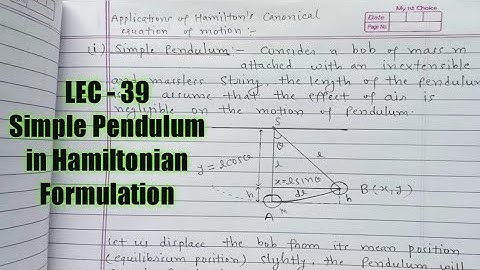 My 1st Choice
Date
Page No.
Applications of Hamilton's Canonical
equation of motion:-
(i) Simple Pendulum:- Consider a bob of mass m
attached with an inextensible
and massless string the length of the pendulum
assume that the effect of air is
negligible on the motion of pendulum.
LEC - 39
Simple Pendulum
in Hamiltonian
Formulation
S
θ
l
l
y = lcosθ
x=lsinθ
B(x,y)
h
h
A
M
Let us displace the bob from its mean position
(equilibrium position) slightly, the pendulum will